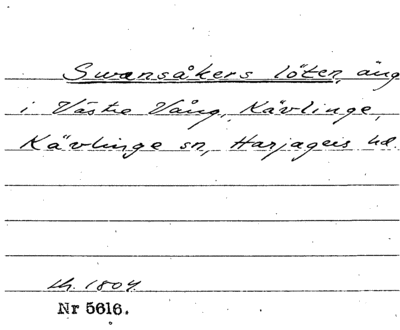 Swensåkers löten, äng
i Västre Vång, Kävlinge,
Kävlinge sn, Harjagers hd.
lh. 1804
Nr 5616.